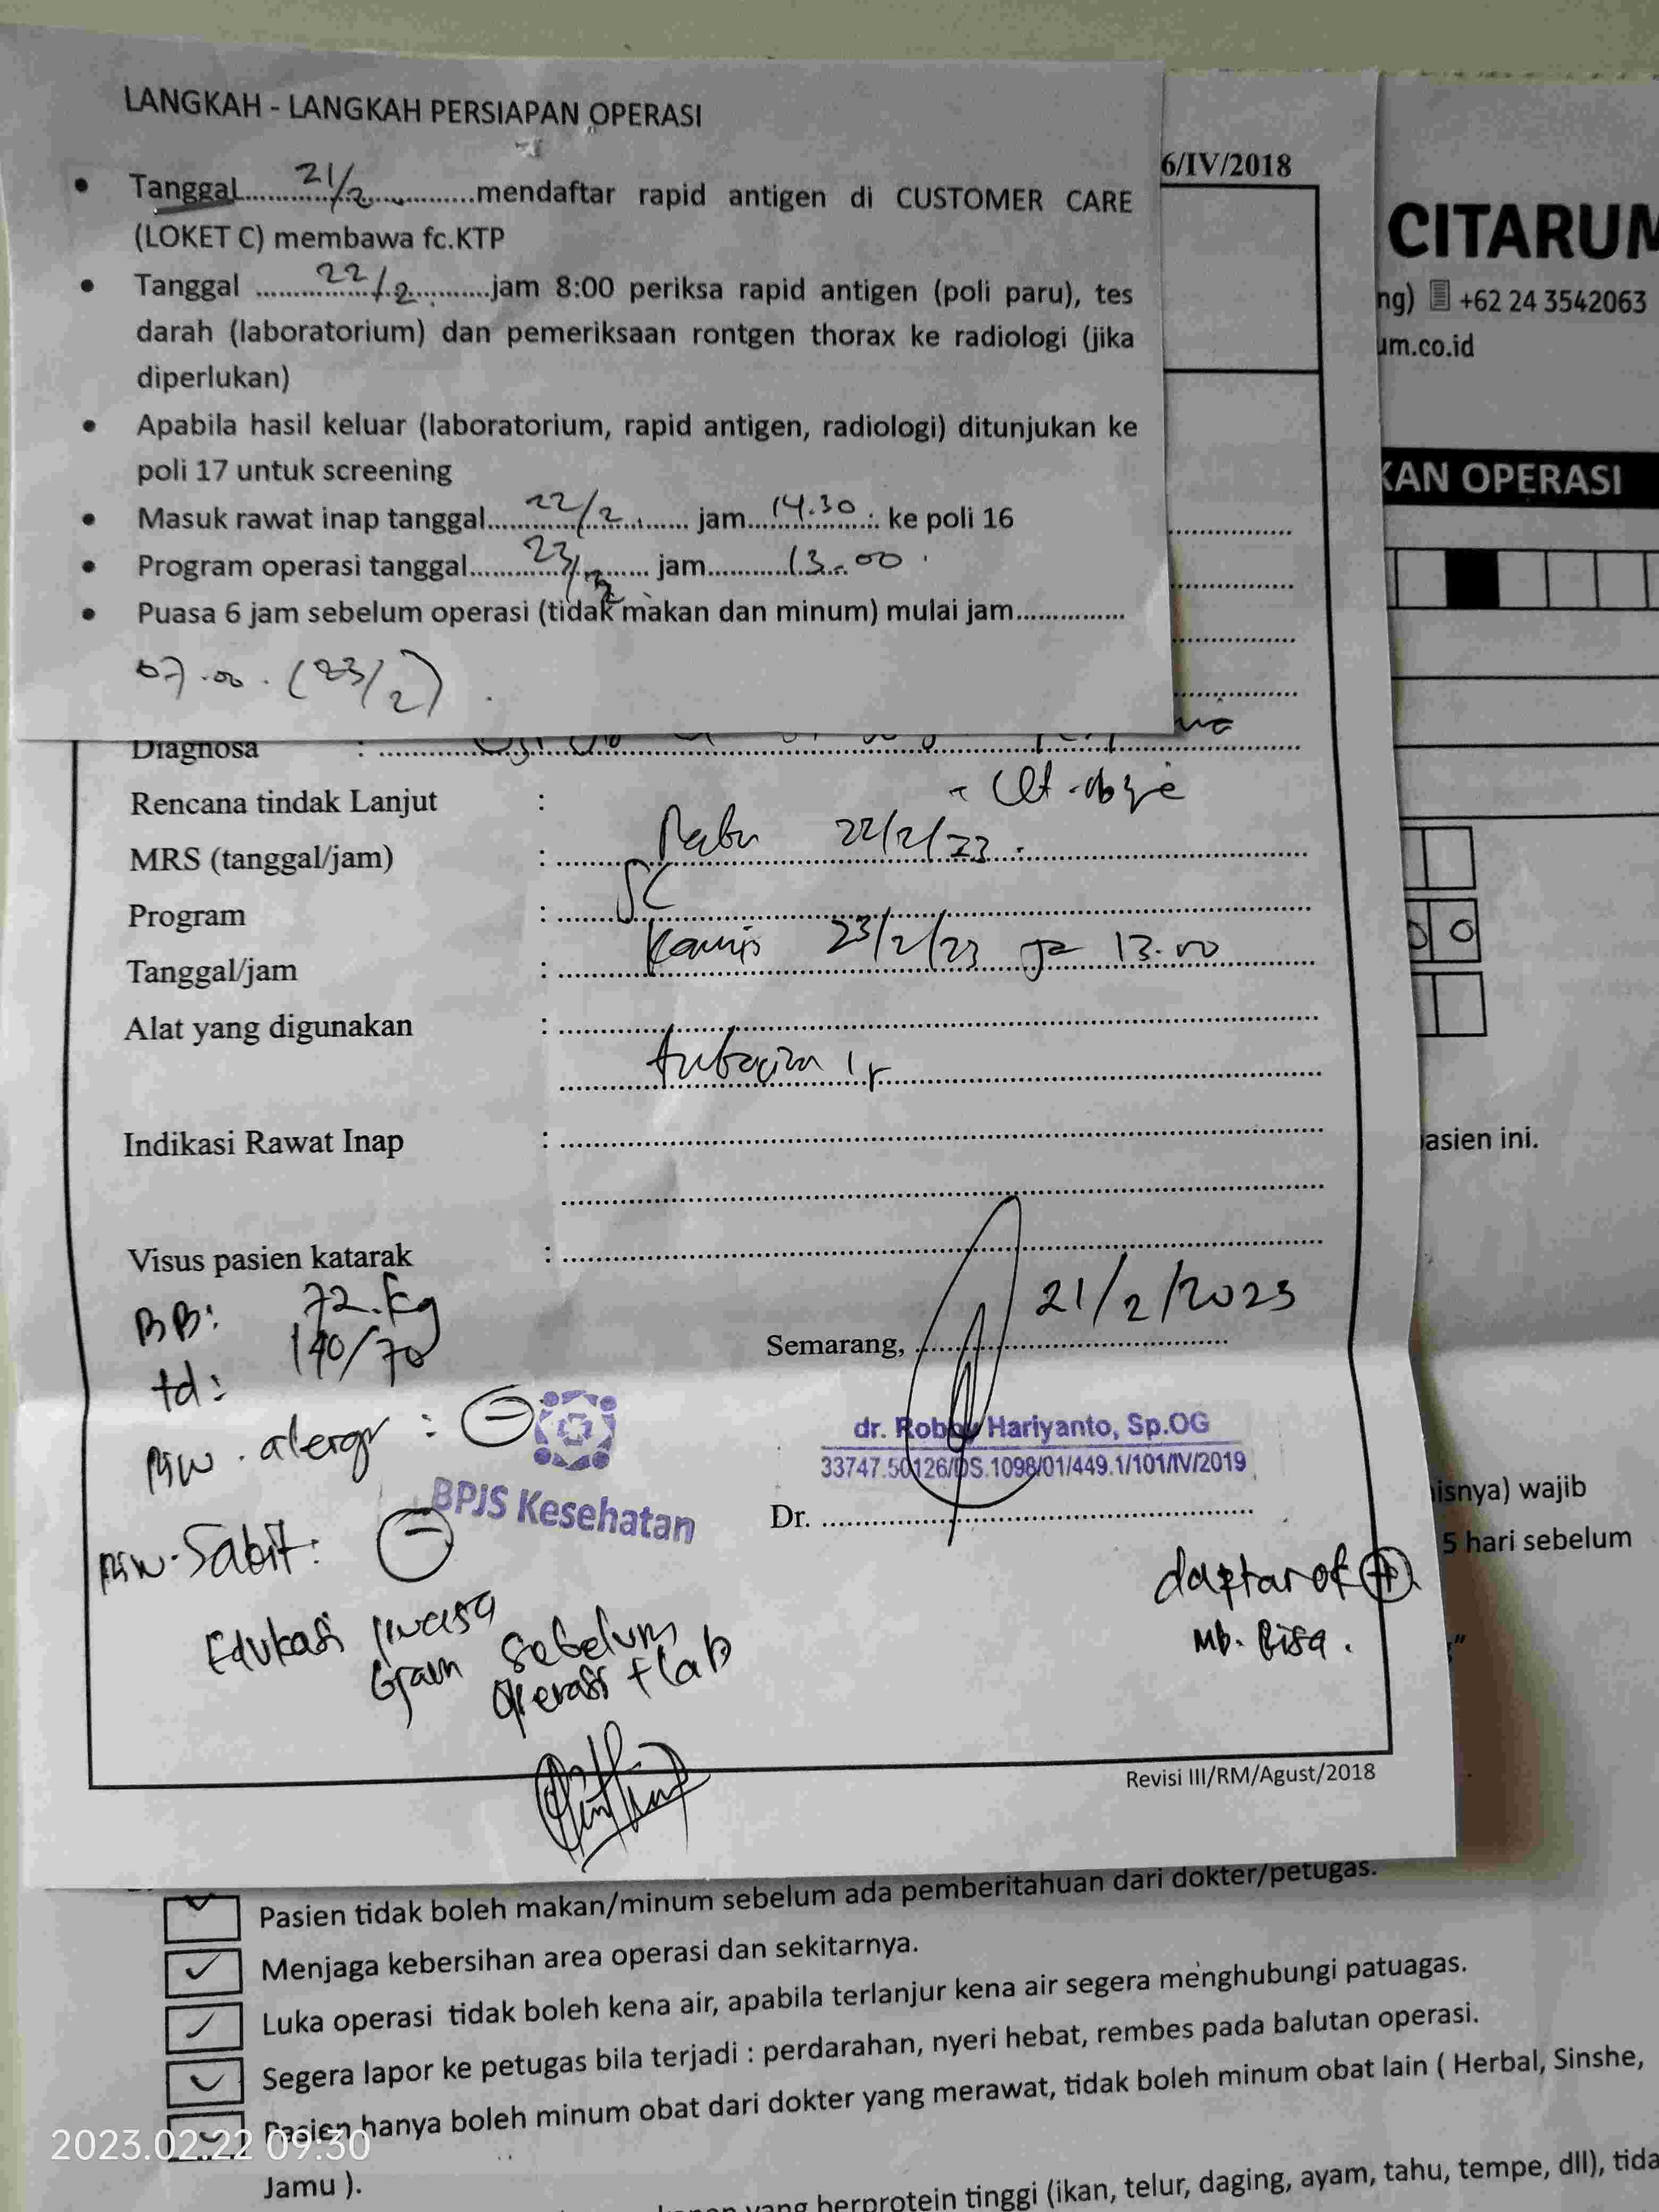 LANGKAH - LANGKAH PERSIAPAN OPERASI
• Tanggal.....21/2.....mendaftar rapid antigen di CUSTOMER CARE
(LOKET C) membawa fc.KTP
• Tanggal .....22/2.....jam 8:00 periksa rapid antigen (poli paru), tes
darah (laboratorium) dan pemeriksaan rontgen thorax ke radiologi (jika
diperlukan)
• Apabila hasil keluar (laboratorium, rapid antigen, radiologi) ditunjukan ke
poli 17 untuk screening
• Masuk rawat inap tanggal.....22/2..... jam.....14.30..... ke poli 16
• Program operasi tanggal.....23/2..... jam.....13.00
• Puasa 6 jam sebelum operasi (tidak makan dan minum) mulai jam...............
07.00. (23/2)
6/IV/2018
CITARUM
ng) +62 24 3542063
um.co.id
KAN OPERASI
Diagnosa :
Rencana tindak Lanjut :
MRS (tanggal/jam) : Rabu 22/2/23.
Program : SC
Tanggal/jam : Kamis 23/2/23 13.00
Alat yang digunakan :
Indikasi Rawat Inap :
Visus pasien katarak :
BB: 72.kg
td: 140/70
Riw. alergi : (-)
Riw. Sakit: (-)
Edukasi puasa
6jam sebelum
operasi + lab
BPJS Kesehatan
Semarang, 21/2/2023
dr. Robby Hariyanto, Sp.OG
33747.50126/DS.1098/01/449.1/101/IV/2019
Dr. .....
daftar ok (+)
Mb. Risa.
Revisi III/RM/Agust/2018
asien ini.
isnya) wajib
5 hari sebelum
Pasien tidak boleh makan/minum sebelum ada pemberitahuan dari dokter/petugas.
Menjaga kebersihan area operasi dan sekitarnya.
Luka operasi tidak boleh kena air, apabila terlanjur kena air segera menghubungi patuagas.
Segera lapor ke petugas bila terjadi : perdarahan, nyeri hebat, rembes pada balutan operasi.
Pasien hanya boleh minum obat dari dokter yang merawat, tidak boleh minum obat lain ( Herbal, Sinshe,
Jamu ).
yang berprotein tinggi (ikan, telur, daging, ayam, tahu, tempe, dll), tida
2023.02.22 09:30